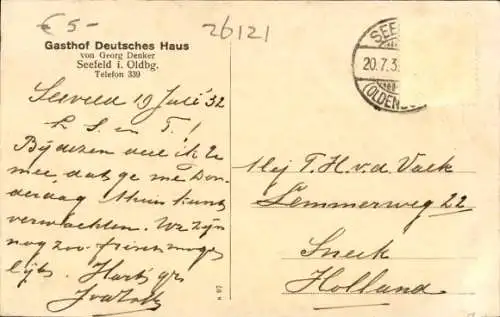 € 5-
26121
Gasthof Deutsches Haus
von Georg Denker
Seefeld i. Oldbg.
Telefon 339
SEE
20.7.3
(OLDENB
Seeveld 19 Juli 32
L S en T!
Bij dezen deel ik U
mee, dat ge me Don-
derdag thuis kunt
verwachten. We zijn
nog zoo frisch moge-
lijk. Hart gr
Mej T. H. v. d. Valk
Lemmerweg 22
Sneek
Holland